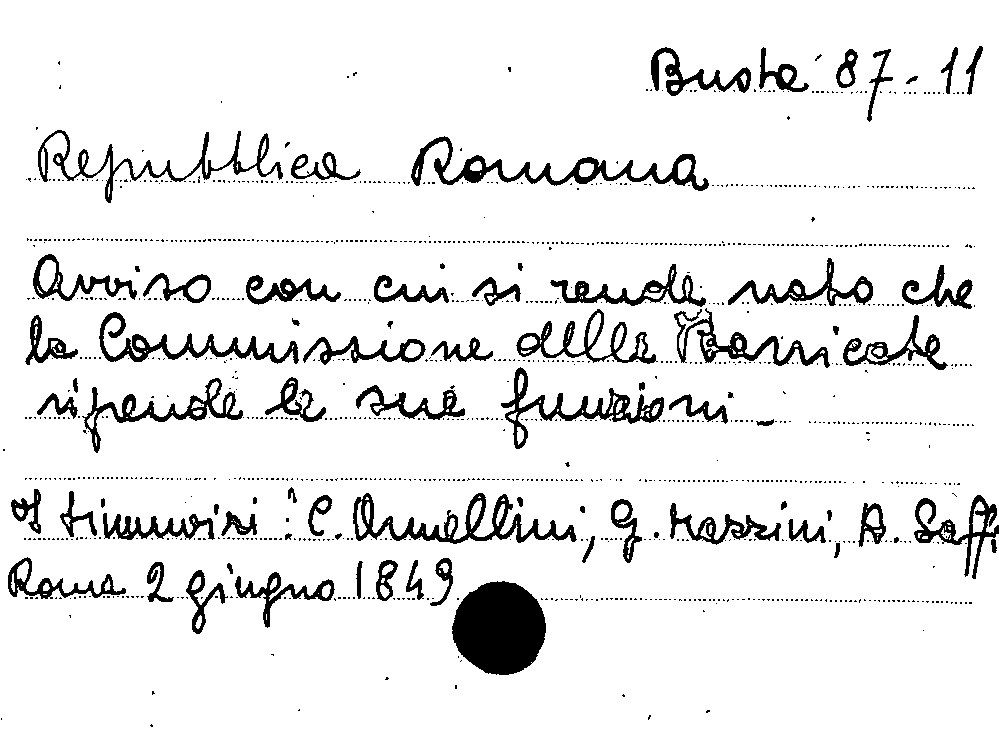 Busta 87-11
Repubblica Romana
Avviso con cui si rende noto che
la Commissione delle Barricate
riprende le sue funzioni_
I triumviri: C. Armellini, G. Mazzini, A. Saffi
Roma 2 giugno 1849